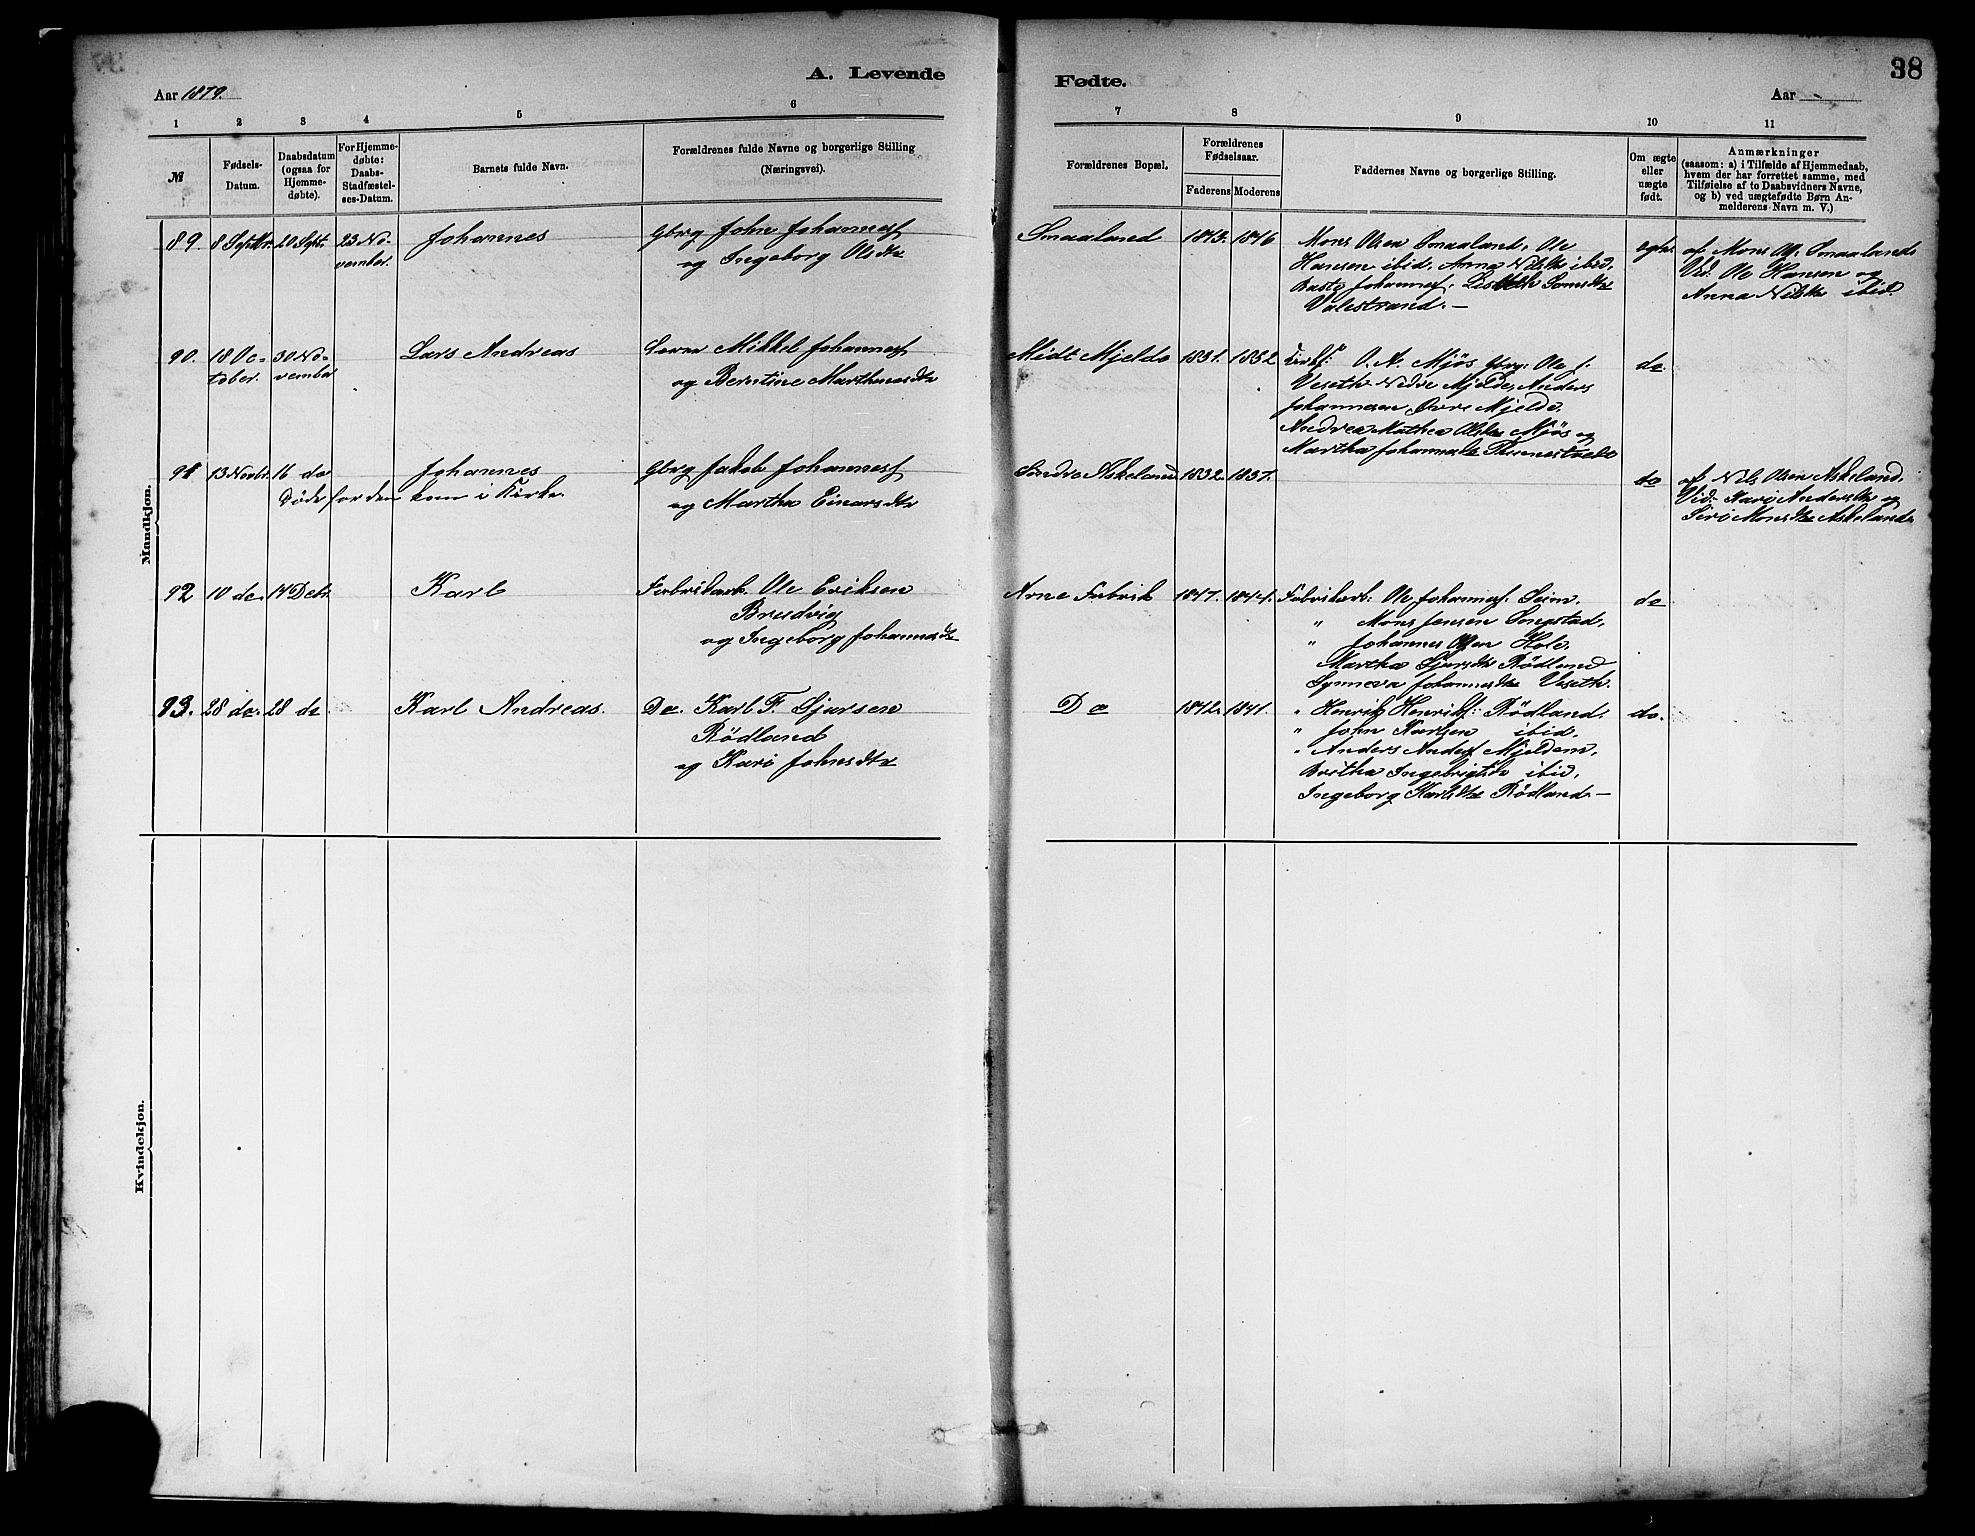 38
A. Levende Fødte.
Aar 1879.
Aar
1 2 3 4 5 6 7 8 9 10 11
№
Fødsels-
Datum.
Daabsdatum
(ogsaa for
Hjemme-
døbte).
For Hjemme-
døbte:
Daabs-
Stadfæstel-
ses-Datum.
Barnets fulde Navn.
Forældrenes fulde Navne og borgerlige Stilling
(Næringsvei).
Forældrenes Bopæl.
Forældrenes
Fødselsaar.
Faderens Moderens
Faddernes Navne og borgerlige Stilling.
Om ægte
eller
uægte
født.
Anmærkninger
(saasom: a) i Tilfælde af Hjemmedaab,
hvem der har forrettet samme, med
Tilføielse af to Daabsvidners Navne,
og b) ved uægtefødte Børn An-
melderens Navn m. V.)
Mandkjøn.
89. 8 Septbr. 20 Sept. 23 No-
vember.
Johannes
Gbrg John Johannesf
og Ingeborg Olsdtr
Smaaland 1843. 1846
Mons Olsen Smaaland, Ole
Hansen ibid, Anna Nilsdtr ibid,
Johannesf. Lisbeth
Valestrand.—
ægte.
af Mons Ols. Smaaland
Vid: Ole Hansen og
Anna Nilsdtr ibid.
90. 18 Oc-
tober.
30 No-
vember
Lars Andreas
Mikkel Johannesf
og Berntine Marthinusdtr
Midt Mjelde 1831. 1852
Kirks: O. A. Mjøs Gbrg: Ole J.
Veseth Nedre Mjelde, Anders
Johannesen Øvre Mjelde.
Andrea Mathea Olsdtr Mjøs og
Martha Johannesdtr
do
91 13 Novbr. 16 do
Johannes
Døde før den kom i Kirke
Gbrg Jakob Johannesf
og Martha Einarsdtr
Søndre Askeland 1832. 1837.
do
af Nils Olsen Askeland.
Vid: Kari Andersdtr og
Siri Monsdtr Askeland.
92 10 do. 14 Decbr.
Karl
Fabrikarb. Ole Eriksen
Brudvig
og Ingeborg Johannesdtr
Arne Fabrik 1847. 1844.
Fabrikarb: Ole Johannesf. Seim.
" Mons Jensen Songstad,
" Johannes Olsen Hole.
Martha Sjursdtr Rødland
Synneva Johannesdtr Veseth.
do
93. 28 do. 28 do
Karl Andreas.
Do. Karl F. Sjursen
Rødland
og Kari Johnsdtr
Do 1842. 1841.
" Henrik Henriksf: Rødland.
" John Karlsen ibid.
" Anders Andersf Mjeldem,
Britha Ingebrigtsdtr ibid,
Ingeborg Karlsdtr Rødland.—
do.
Kvindekjøn.